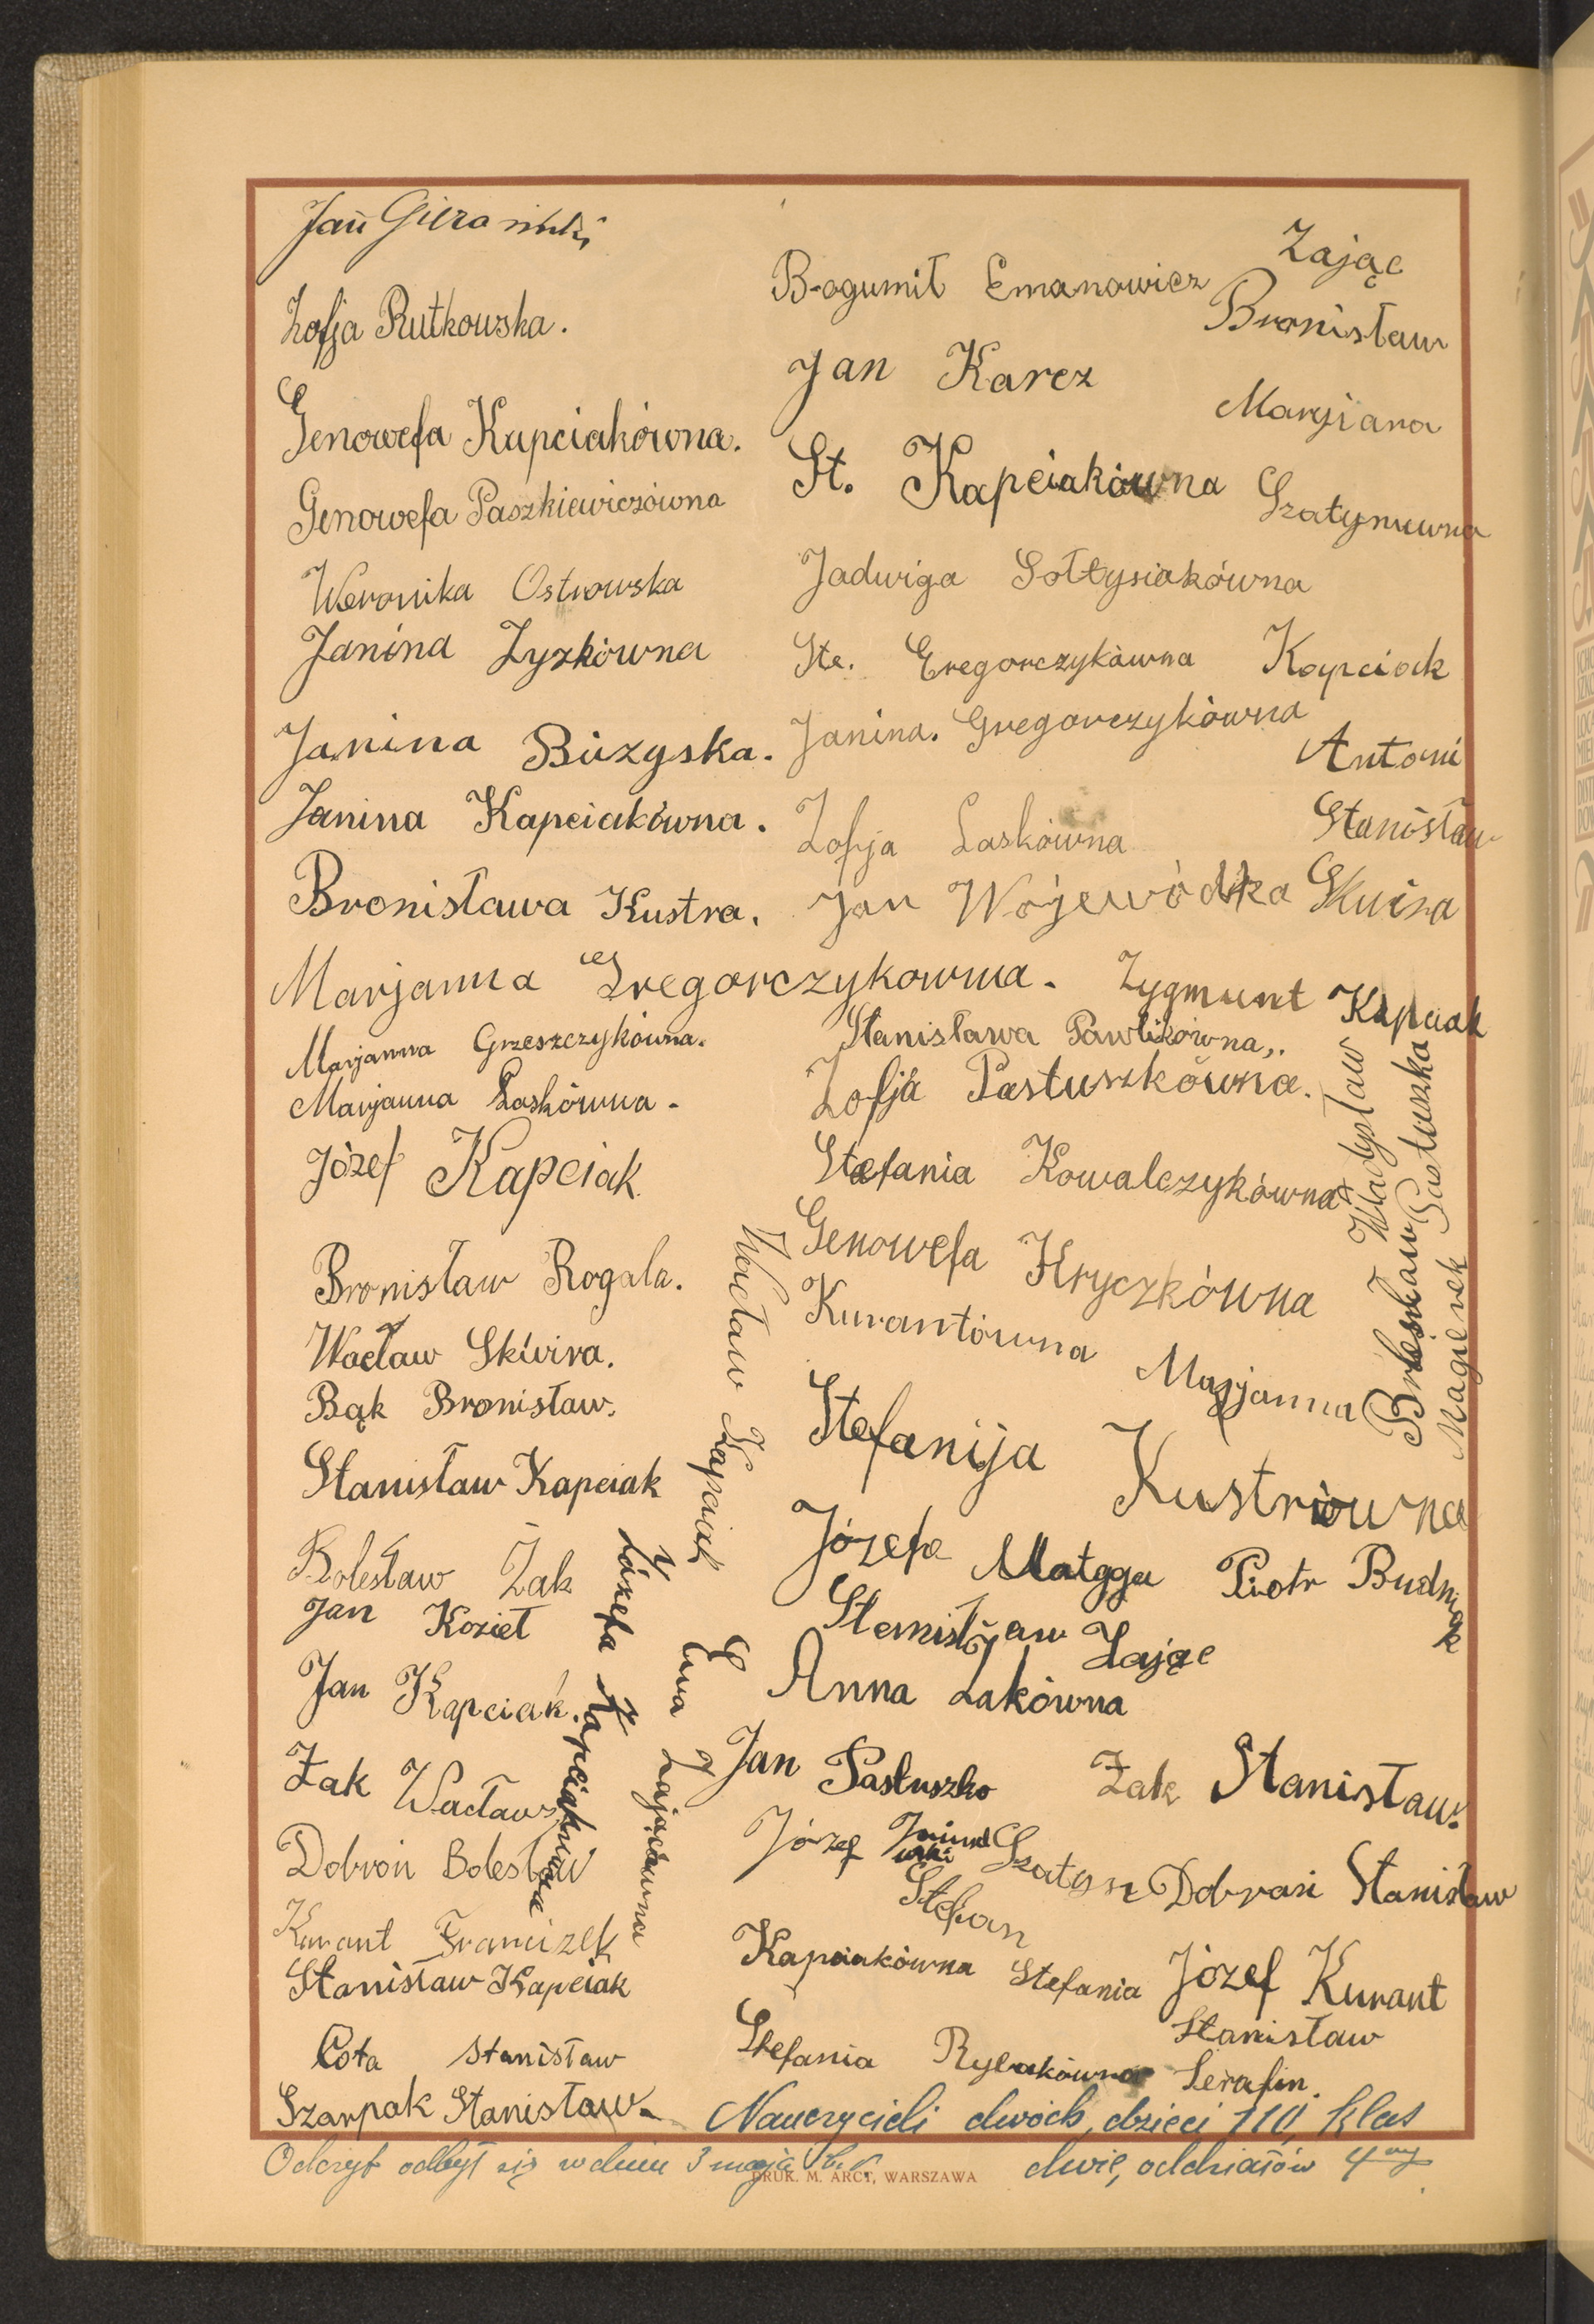 Jan Gierasiński
Zofja Rutkowska.
Genowefa Kapciakówna.
Genowefa Paszkiewiczówna
Weronika Ostrowska
Janina Zyzkówna
Janina Buzyska.
Janina Kapciakówna.
Bronisława Kustra.
Marjanna Gregorczykowna.
Marjanna Grzeszczykówna.
Marjanna Laskówna.
Józef Kapciak
Bronisław Rogala.
Wacław Skwira.
Bąk Bronisław.
Stanisław Kapciak
Bolesław Żak
Jan Kozieł
Jan Kapciak.
Żak Wacław
Dobroń Bolesław
Kurant Franciszek
Stanisław Kapciak
Cota Stanisław
Szarpak Stanisław.
Wacław Kapciak
Józefa Kapciakówna
Ewa Zającówna
Bogumił Emanowicz
Jan Karcz
St. Kapciakówna
Jadwiga Sołtysiakówna
Ste. Gregorczykówna
Janina. Gregorczykówna
Zofja Laskówna
Jan Wojewódka
Zygmunt Kapciak
Stanisława Pawlikówna,.
Zofja Pastuszkówna.
Stefania Kowalczykówna
Genowefa Hryczkówna
Kurantówna Marjanna
Stefanija Kustrówna
Józefa Małgga
Piotr Budniak
Stanisław Zając
Anna Żakówna
Jan Pastuszko
Żak Stanisław.
Józef
Szatysz
Stefan
Dobroń Stanisław
Kapciakówna Stefania
Józef Kurant
Stefania Rybakówna
Stanisław
Serafin.
Zając
Bronisław
Marjiana
Szatynuwna
Kapciack
Antoni
Stanisław
Skwira
Władysław
Pastuszka
Bolesław
Magierek
Nauczycieli dwóch, dzieci 110, klas
dwie, oddziałów 4ry
Odczyt odbył się w dniu 3 maja b.r.
DRUK. M. ARCT, WARSZAWA